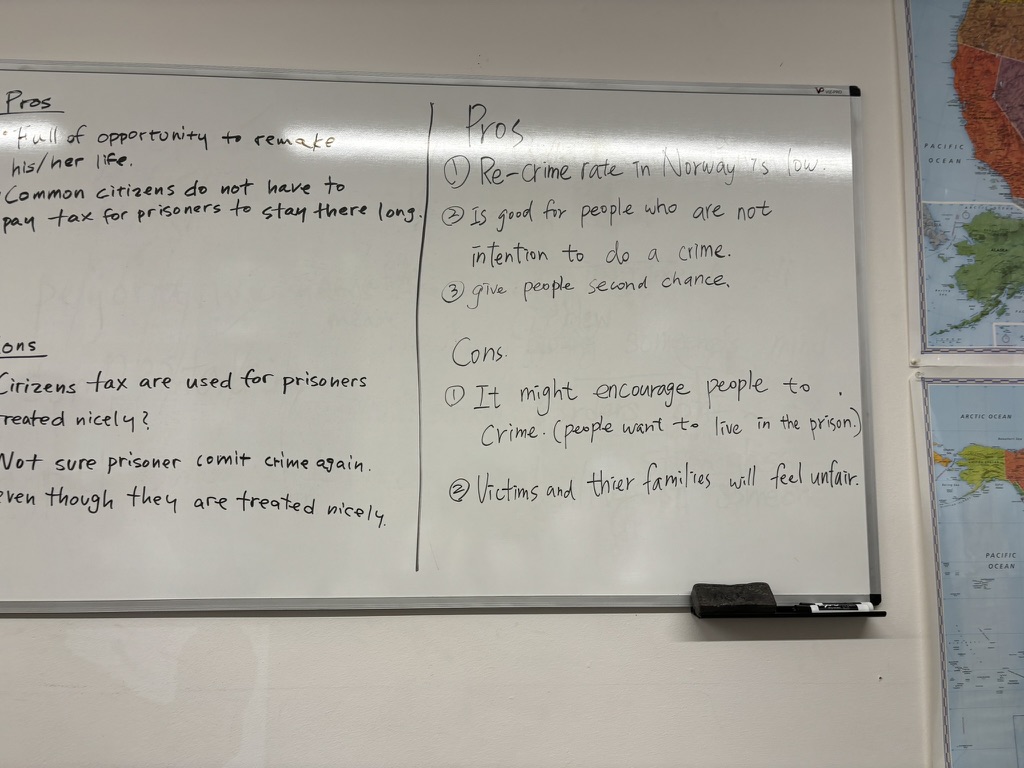 Pros
• Full of opportunity to remake
his/her life.
Common citizens do not have to
pay tax for prisoners to stay there long.
ons
Citizens tax are used for prisoners
reated nicely?
Not sure prisoner comit crime again.
even though they are treated nicely.
Pros
① Re-crime rate in Norway is low.
② Is good for people who are not
intention to do a crime.
③ give people second chance.
Cons.
① It might encourage people to
crime. (people want to live in the prison.)
② Victims and thier families will feel unfair.
PACIFIC
OCEAN
ARCTIC OCEAN
PACIFIC
OCEAN